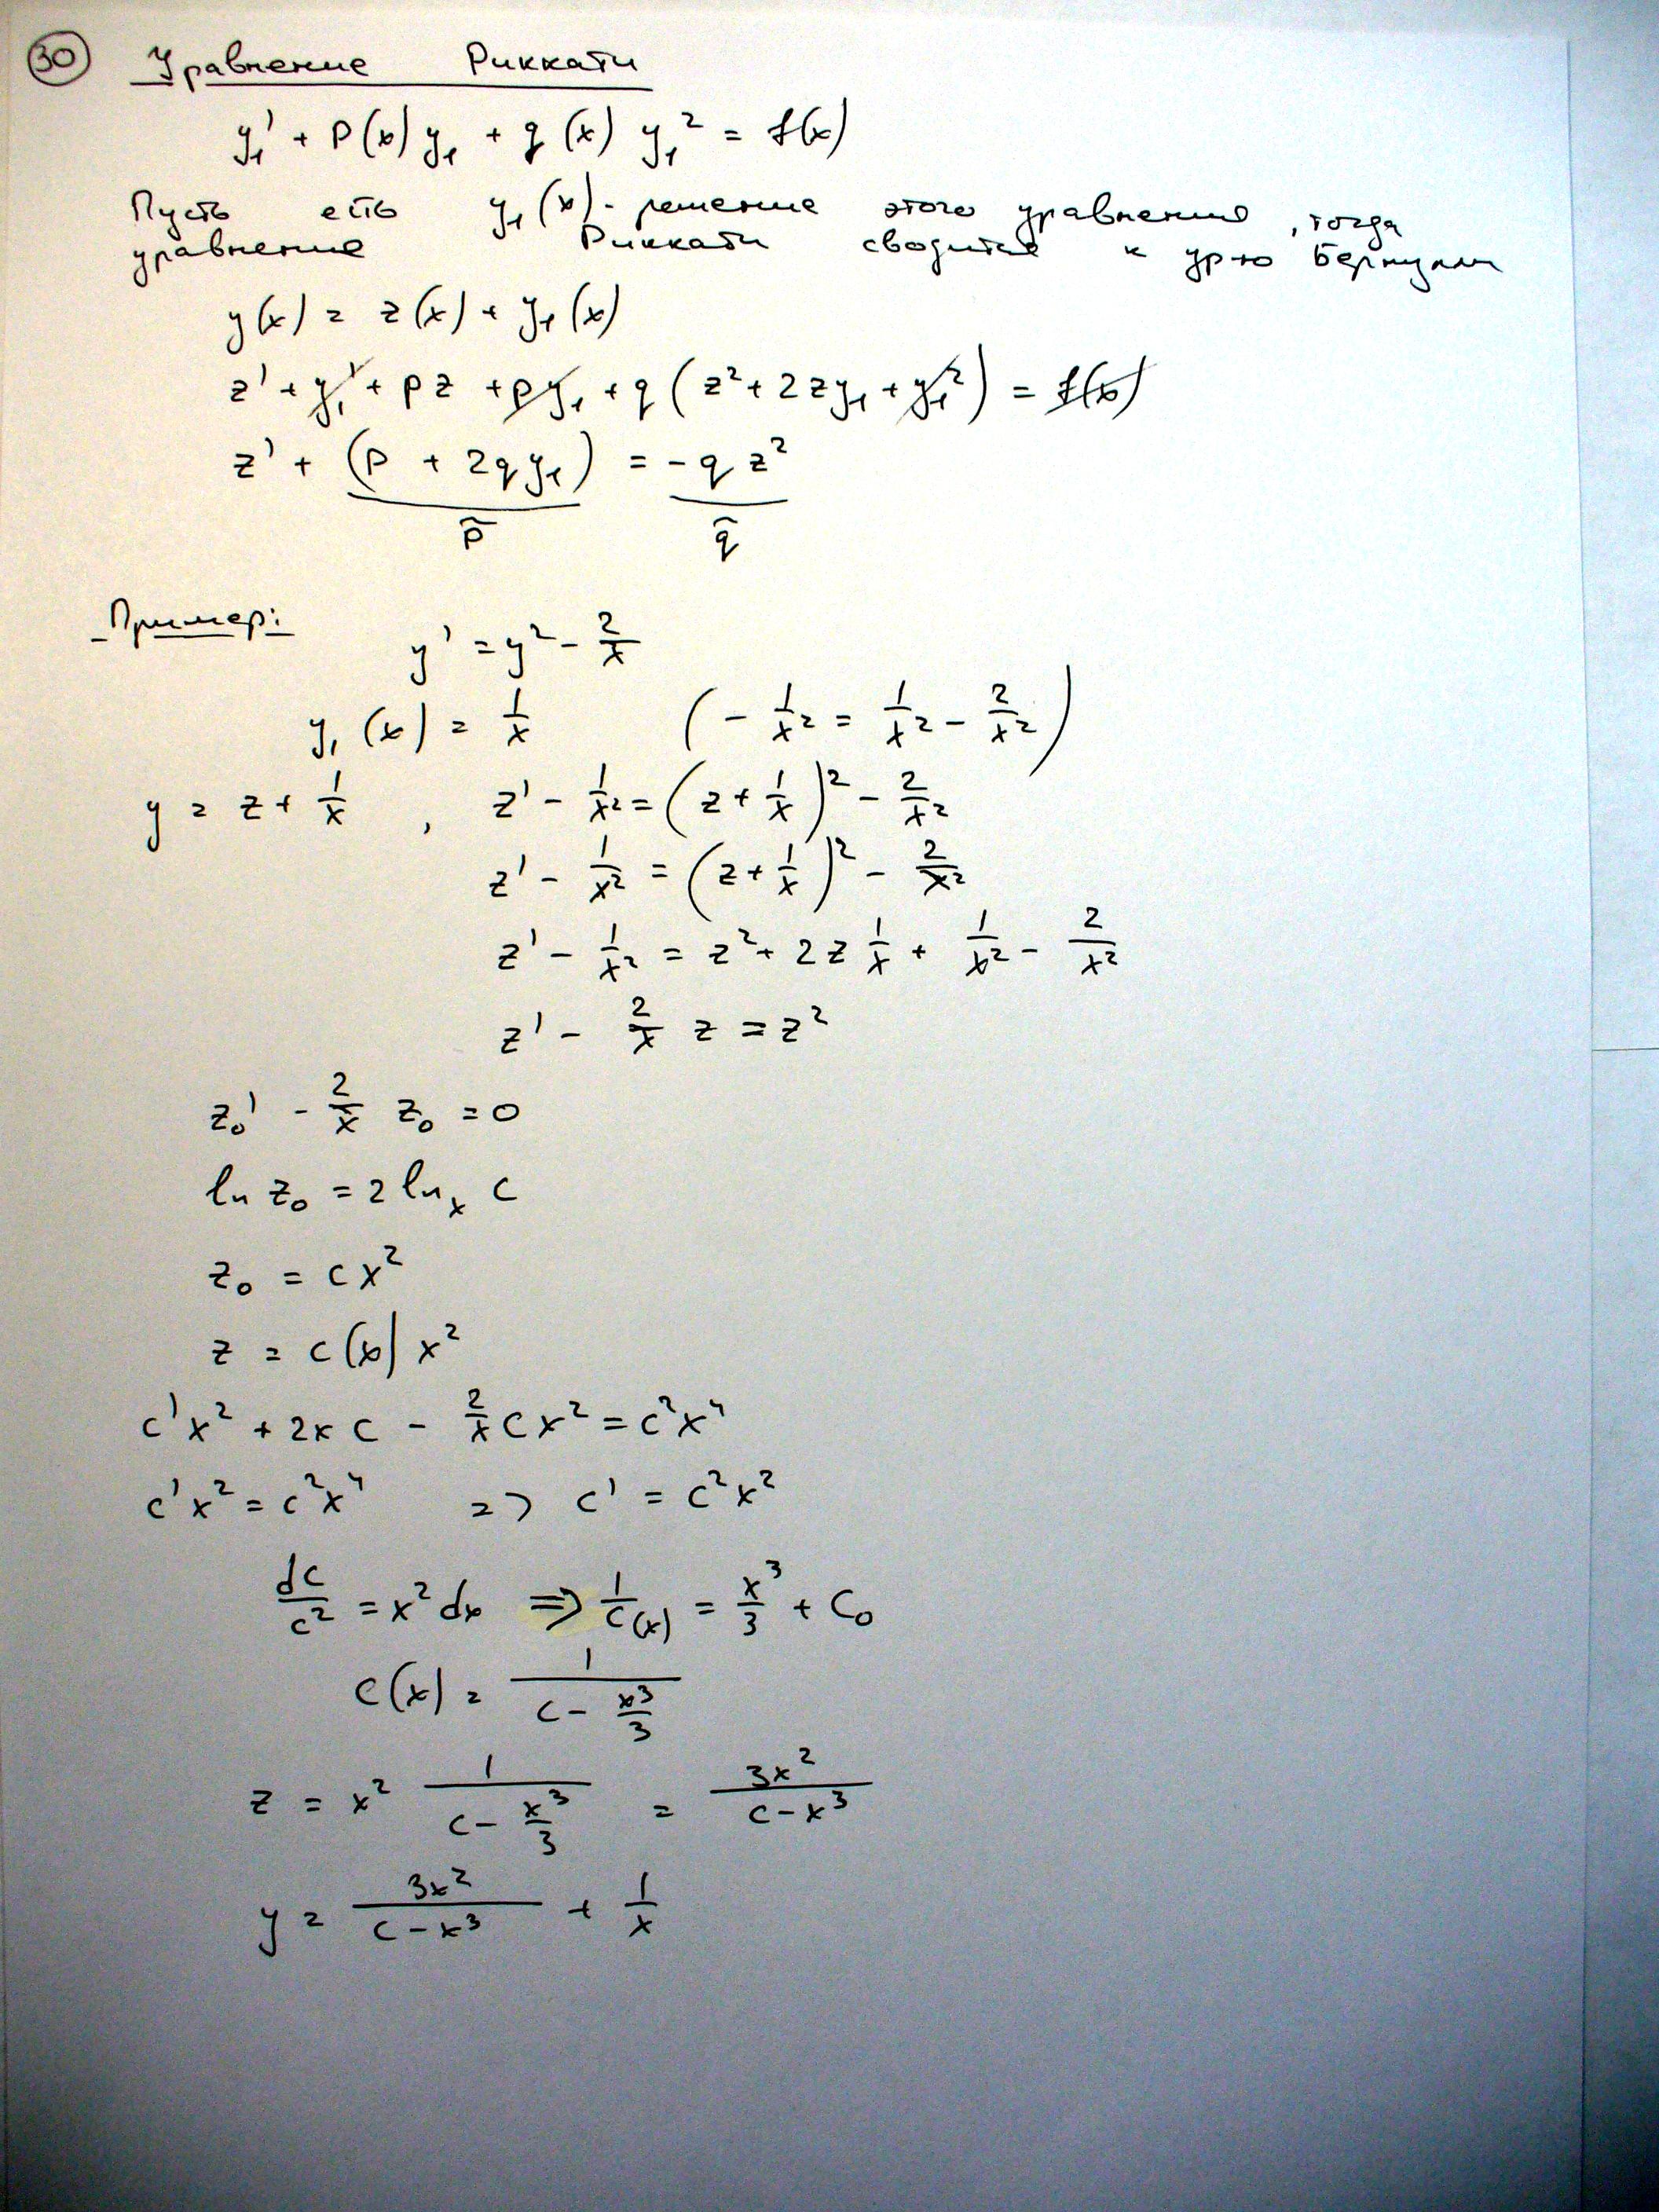 30 Уравнение Риккати
y₁' + P(x) y₁ + q(x) y₁² = f(x)
Пусть есть y₁(x) - решение этого уравнения, тогда
уравнение Риккати сводится к ур-ю Бернулли
y(x) = z(x) + y₁(x)
z' + y₁' + pz + py₁ + q(z² + 2zy₁ + y₁²) = f(x)
z' + (p + 2qy₁) = -qz²
p̃ q̃
Пример:
y' = y² - 2/x
y₁(x) = 1/x (- 1/x² = 1/x² - 2/x²)
y = z + 1/x , z' - 1/x² = (z + 1/x)² - 2/x²
z' - 1/x² = (z + 1/x)² - 2/x²
z' - 1/x² = z² + 2z 1/x + 1/x² - 2/x²
z' - 2/x z = z²
z₀' - 2/x z₀ = 0
ln z₀ = 2 lnₓ c
z₀ = cx²
z = c(x) x²
c'x² + 2xc - 2/x cx² = c²x⁴
c'x² = c²x⁴ => c' = c²x²
dc/c² = x²dx => 1/c(x) = x³/3 + C₀
c(x) = 1/(c - x³/3)
z = x² 1/(c - x³/3) = 3x²/(c - x³)
y = 3x²/(c - x³) + 1/x